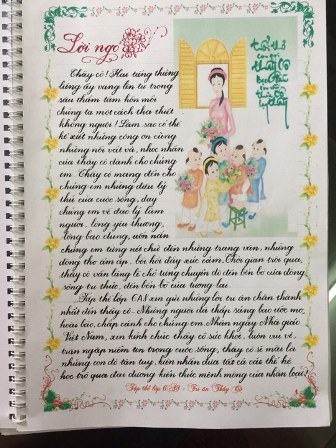 Lời ngỏ
Thầy cô! Hai tiếng thiêng
liêng ấy vang lên từ trong
sâu thẳm tâm hồn mỗi
chúng ta một cách tha thiết
không nguôi! Làm sao có thể
kể xiết những công ơn cùng
những nỗi vất vả, nhọc nhằn
của thầy cô dành cho chúng
em. Thầy cô mang đến cho
chúng em những điều lý
thú của cuộc sống, dạy
chúng em về đạo lý làm
người, lòng yêu thương,
lòng bao dung, uốn nắn
chúng em từng nét chữ đến những trang văn, những
dòng thơ ấm áp, bồi hồi đầy xúc cảm. Thời gian trôi qua,
thầy cô vẫn lặng lẽ chở từng chuyến đò đến bến bờ của dòng
sông tri thức, đến bến bờ của tương lai.
Tập thể lớp 6A3 xin gửi những lời tri ân chân thành
nhất đến thầy cô. Những người đã thắp sáng bao ước mơ,
hoài bão, chắp cánh cho chúng em. Nhân ngày Nhà giáo
Việt Nam, xin kính chúc thầy cô sức khoẻ, luôn vui vẻ,
tràn ngập niềm tin trong cuộc sống, thầy cô sẽ mãi là
những con đò tận tụy, kiên nhẫn đưa tất cả các thế hệ
học trò qua đại dương kiến thức mênh mông của nhân loại!
Tập thể lớp 6A3 - Tri ân Thầy Cô